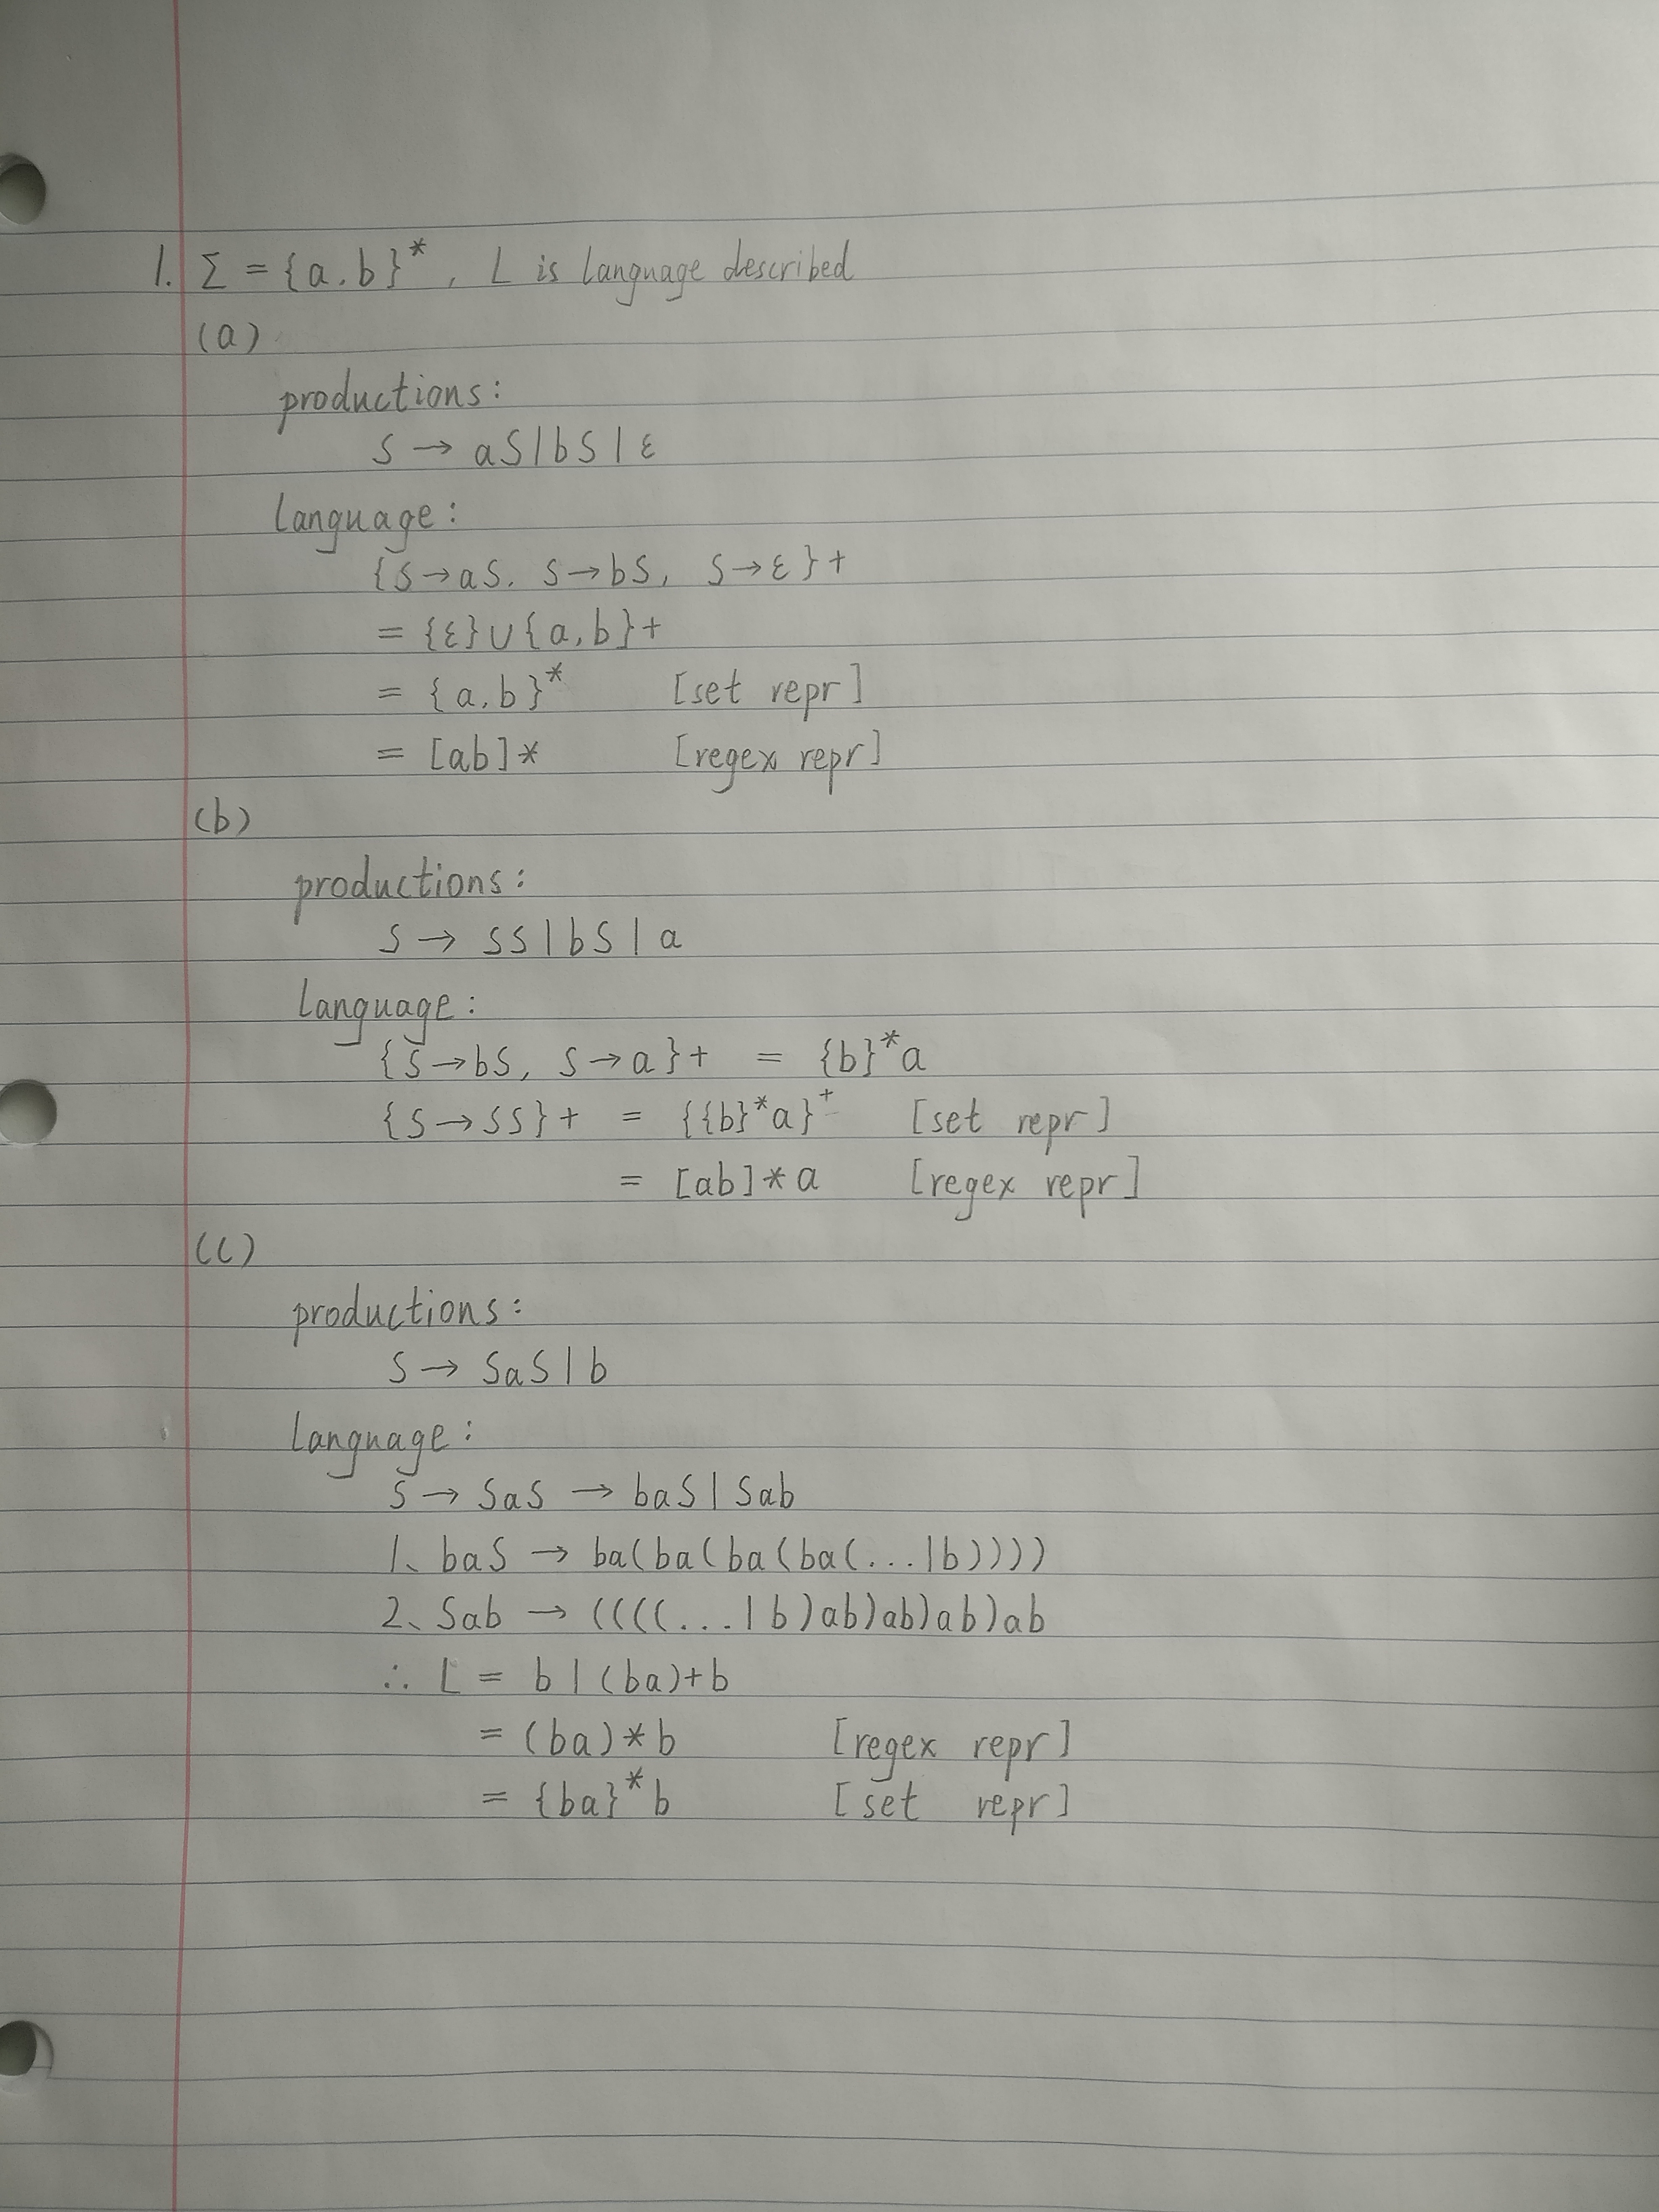 1. Σ = {a, b}*, L is language described
(a)
productions:
S → aS | bS | ε
language:
{S → aS, S → bS, S → ε}+
= {ε} ∪ {a, b}+
= {a, b}* [set repr]
= [ab]* [regex repr]
(b)
productions:
S → SS | bS | a
language:
{S → bS, S → a}+ = {b}*a
{S → SS}+ = {{b}*a}⁺ [set repr]
= [ab]*a [regex repr]
(c)
productions:
S → SaS | b
language:
S → SaS → baS | Sab
1、baS → ba(ba(ba(ba(...|b))))
2、Sab → ((((...|b)ab)ab)ab)ab
∴ L = b | (ba)+b
= (ba)*b [regex repr]
= {ba}*b [set repr]